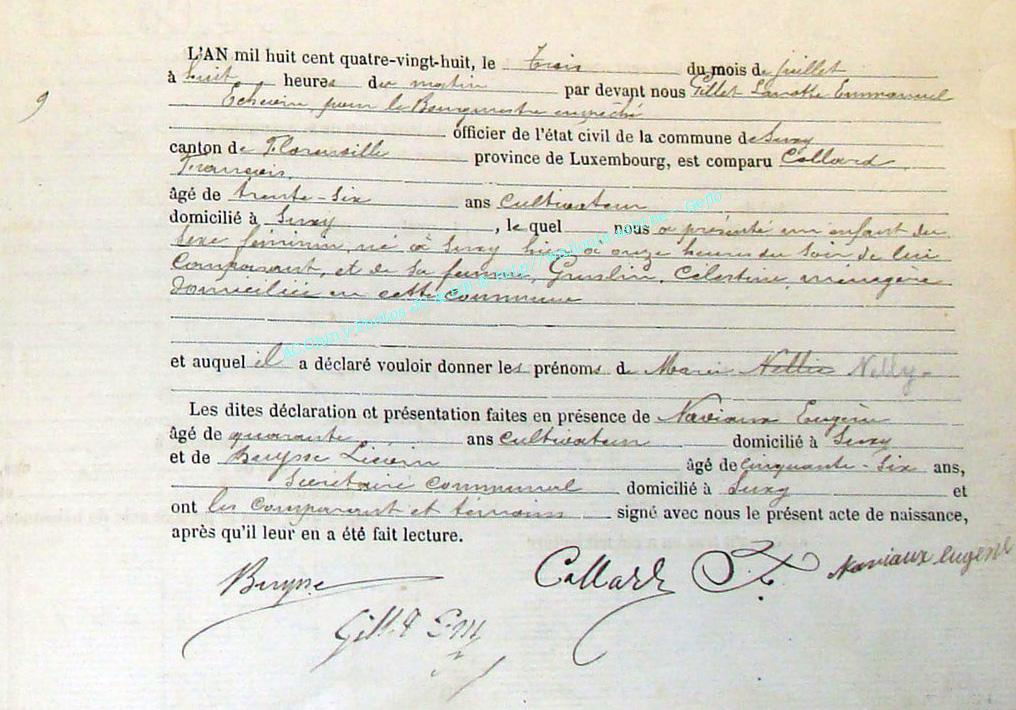 L'AN mil huit cent quatre-vingt-huit, le trois du mois de juillet
à huit heures du matin par devant nous Gillet Lamotte Emmanuel
9
Echevin, pour le Bourgmestre empêché
officier de l'état civil de la commune de Suxy
canton de Florenville province de Luxembourg, est comparu Collard
François,
âgé de trente-six ans cultivateur
domicilié à Suxy, lequel nous a présenté un enfant du
sexe féminin, né à Suxy hier à onze heures du soir de lui
comparant, et de sa femme, Célestine, ménagère
domiciliée en cette commune
et auquel il a déclaré vouloir donner les prénoms de Marie Nellie Nelly.
Les dites déclaration et présentation faites en présence de Naviaux Eugène
âgé de quarante ans cultivateur domicilié à Suxy
et de Buysse Liévin âgé de cinquante-six ans,
Secrétaire communal domicilié à Suxy et
ont les comparant et témoins signé avec nous le présent acte de naissance,
après qu'il leur en a été fait lecture.
Buysse Collard F. Naviaux Eugène
Gillet Em